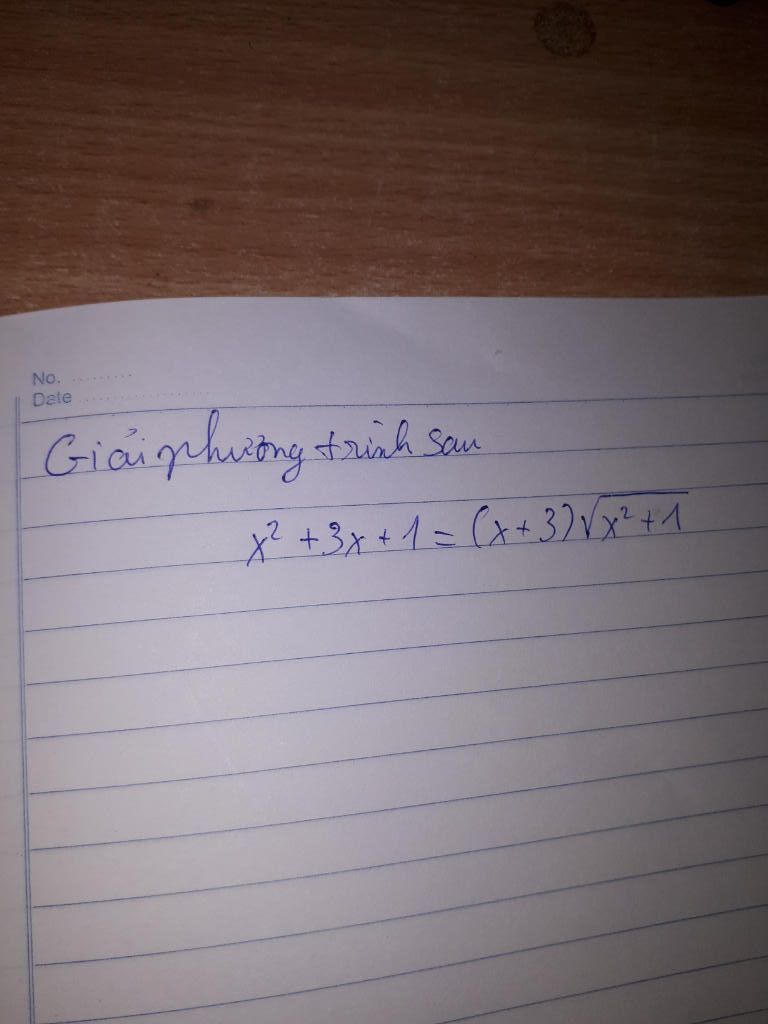 No. .........
Date ......................
Giải phương trình sau
x² + 3x + 1 = (x+3)√(x² + 1)